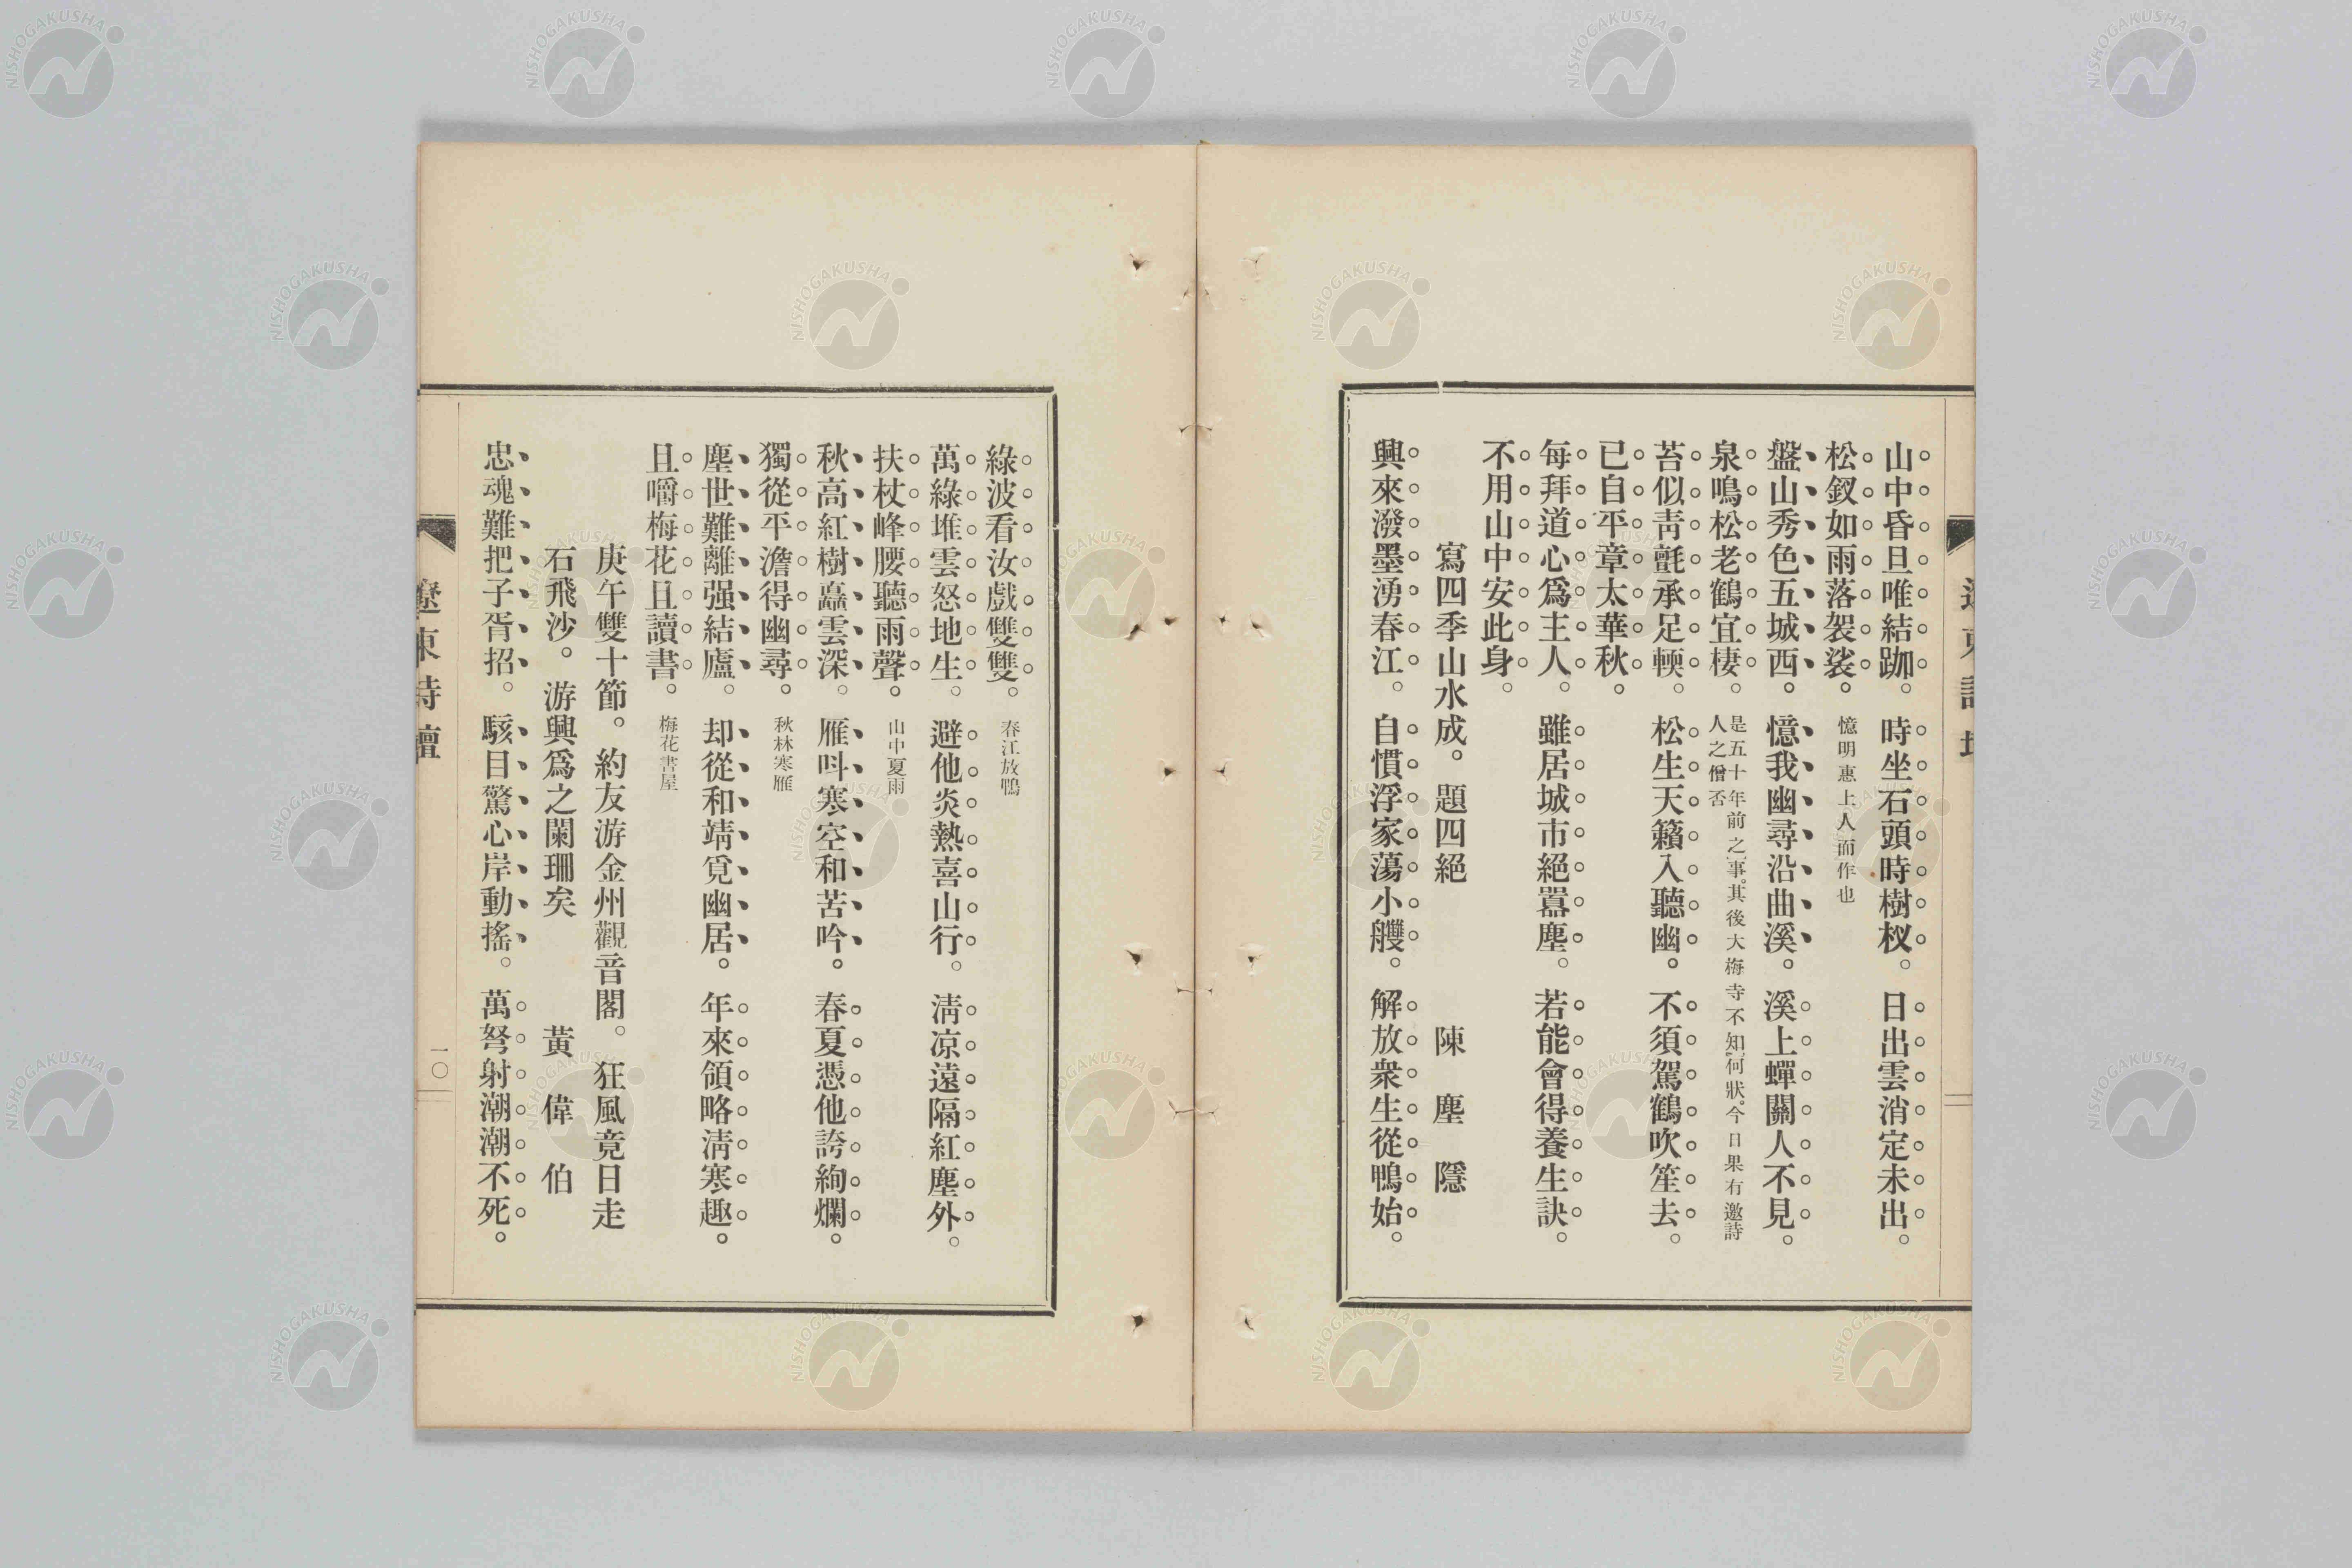 山中昏旦唯結跏。時坐石頭時樹杈。日出雲消定未出。
松釵如雨落袈裟。憶明惠上人而作也
盤山秀色五城西。憶我幽尋沿曲溪。溪上蟬關人不見。
泉鳴松老鶴宜棲。是五十年前之事。其後大梅寺不知何狀。今日果有邀詩
人之僧否
苔似靑氈承足輭。松生天籟入聽幽。不須駕鶴吹笙去。
已自平章太華秋。
每拜道心爲主人。雖居城市絕囂塵。若能會得養生訣。
不用山中安此身。
寫四季山水成。題四絕 陳塵隱
興來潑墨湧春江。自慣浮家蕩小艭。解放衆生從鴨始。
綠波看汝戲雙雙。春江放鴨
萬綠堆雲怒地生。避他炎熱喜山行。淸凉遠隔紅塵外。
扶杖峰腰聽雨聲。山中夏雨
秋高紅樹矗雲深。雁呌寒空和苦吟。春夏憑他誇絢爛。
獨從平澹得幽尋。秋林寒雁
塵世難離强結廬。却從和靖覓幽居。年來領略淸寒趣。
且嚼梅花且讀書。梅花書屋
庚午雙十節。約友游金州觀音閣。狂風竟日走
石飛沙。游興爲之闌珊矣 黃偉伯
忠魂難把子胥招。駭目驚心岸動搖。萬弩射潮潮不死。
遼東詩壇
一〇
NISHOGAKUSHA